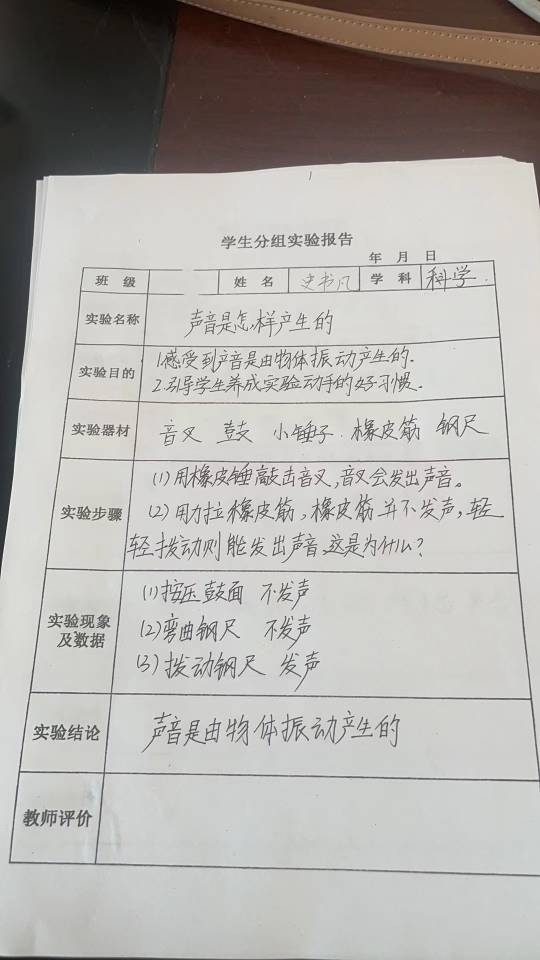 学生分组实验报告
年 月 日
班 级 姓 名 史书凡 学 科 科学
实验名称 声音是怎样产生的
实验目的 1.感受到声音是由物体振动产生的.
2.引导学生养成实验动手的好习惯.
实验器材 音叉 鼓 小锤子 橡皮筋 钢尺
实验步骤 (1)用橡皮锤敲击音叉,音叉会发出声音。
(2)用力拉橡皮筋,橡皮筋并不发声,轻
轻拨动则能发出声音,这是为什么?
实验现象及数据 (1)按压鼓面 不发声
(2)弯曲钢尺 不发声
(3)拨动钢尺 发声
实验结论 声音是由物体振动产生的
教师评价